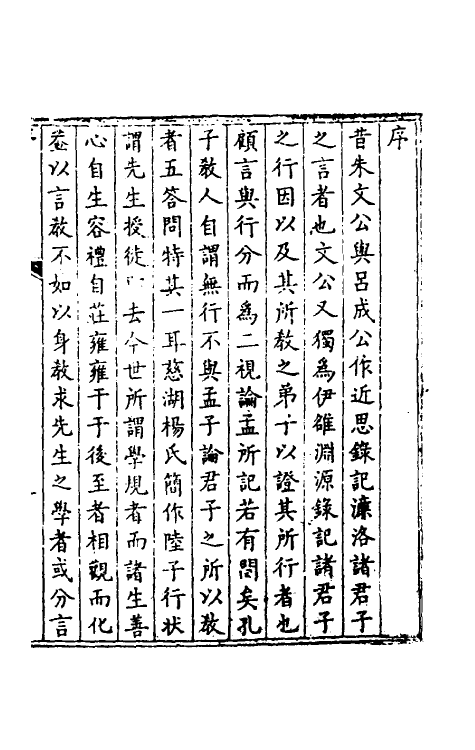 序
昔朱文公與呂成公作近思錄記濂洛諸君子
之言者也文公又獨爲伊雒淵源錄記諸君子
之行因以及其所教之弟子以證其所行者也
顧言與行分而爲二視論孟所記若有間矣孔
子教人自謂無行不與孟子論君子之所以教
者五答問特其一耳慈湖楊氏簡作陸子行狀
謂先生授徒 去今世所謂學規者而諸生善
心自生容禮自莊雍雍于于後至者相觀而化
葢以言教不如以身教求先生之學者或分言